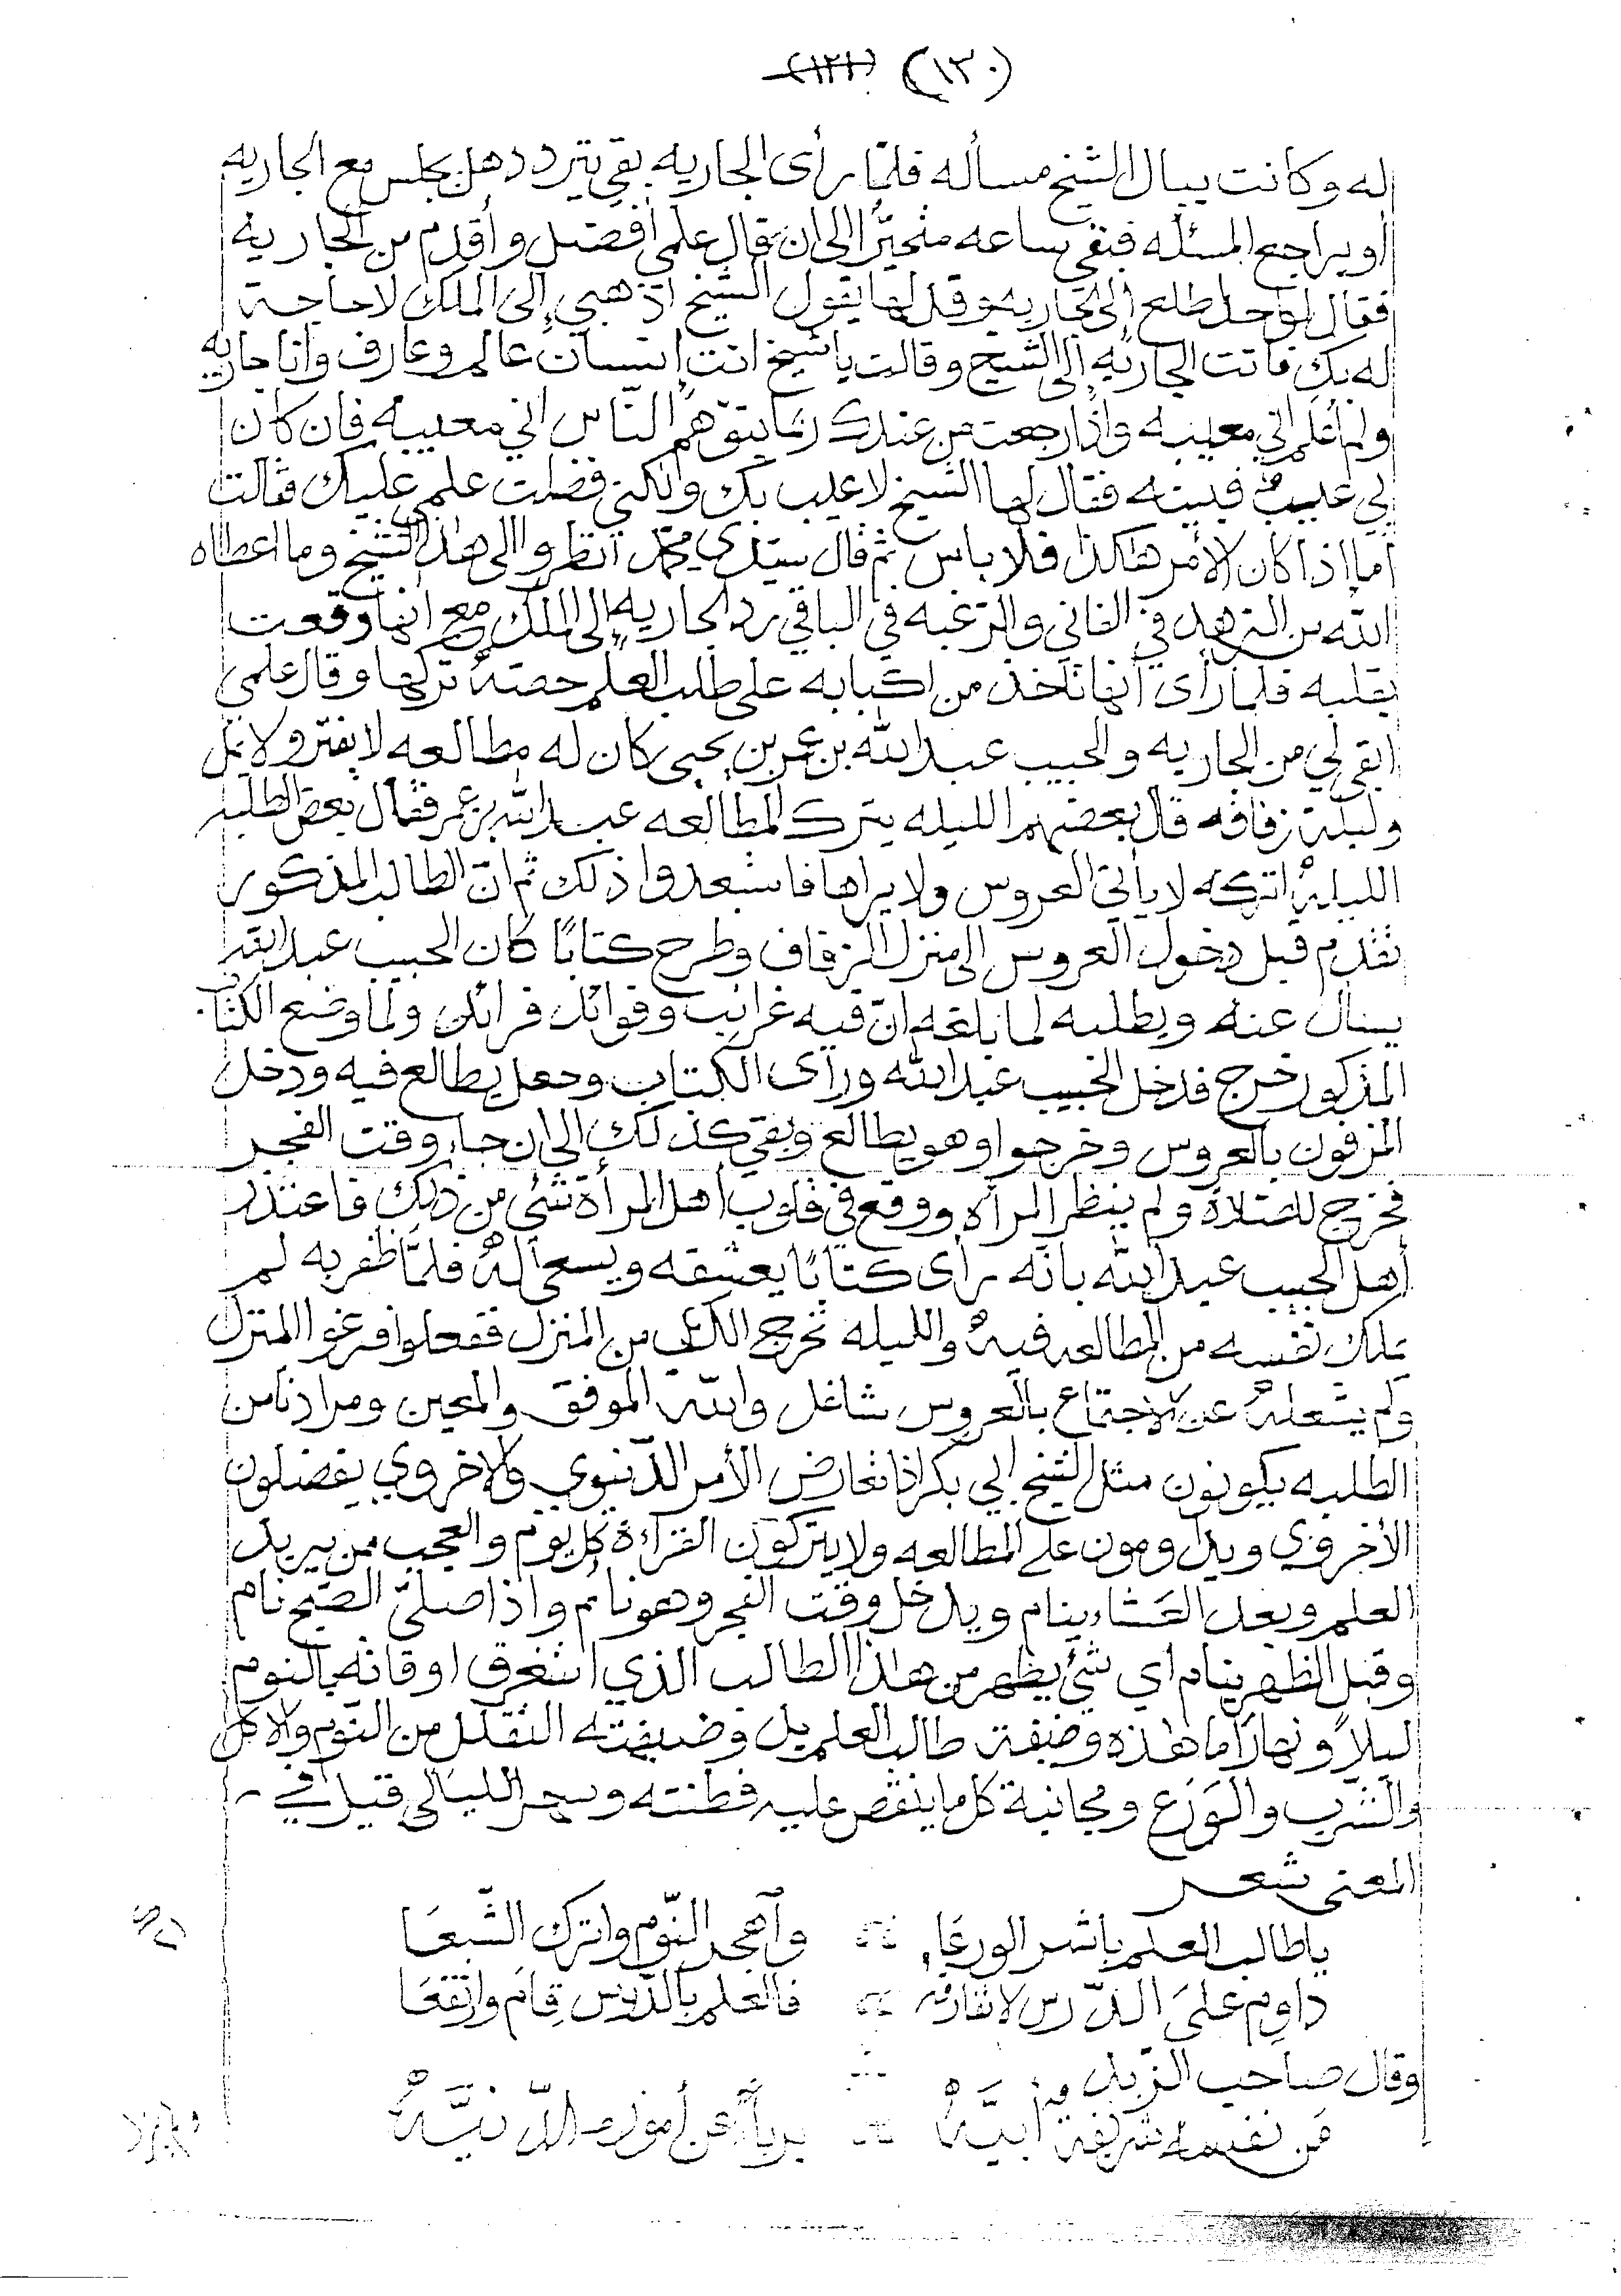 (١٣٠) (١٢١)
له وكانت ببال الشيخ مسأله فلمّا رأى الجاريه بقي يتردد هل يجلس مع الجاريه
أو يراجع المسئله فبقي ساعه متحيّرًا الى ان قال علمي أفضل وأقدم من الجاريه
فقال لواحد اطلع إلى الجاريه وقل لها يقول الشيخ اذهبي إلى الملك لا حاجة
له بك فأتت الجاريه إلى الشيخ وقالت يا شيخ انت إنسان عالم وعارف وأنا جاريه
ولم أعلم اني معيبه وإذا رجعت من عندك ربما يتوهّم النّاس اني معيبه فإن كان
لي عيب فبينه فقال لها الشيخ لا عيب بك ولكني فضلت علمي عليك فقالت
أما إذا كان الأمر هاكذا فلا باس ثم قال سيدي محمد انظروا الى هذا الشيخ وما اعطاه
الله من الزهد في الفاني والرّغبه في الباقي رد الجاريه إلى الملك مع انها وقعت
بقلبه فلما رأى أنها تأخذ من اكبابه على طلب العلم حصته تركها وقال علمي
ابقى لي من الجاريه والحبيب عبد الله بن عمر بن يحيى كان له مطالعه لا يفتر ولا يمل
وليلة زفافه قال بعضهم الليله يترك المطالعه عبد الله بن عمر فقال بعض الطلبه
الليلة اتركه لا يأتي العروس ولا يراها فاستبعدوا ذلك ثم انّ الطالب المذكور
تقدم قبل دخول العروس الى منزل الزفاف وطرح كتابًا كان الحبيب عبد الله
يسأل عنه ويطلبه لما بلغه انّ فيه غرائب وفوائد فرائد ولما وضع الكتاب
المذكور خرج فدخل الحبيب عبد الله ورأى الكتاب وجعل يطالع فيه ودخل
المزفون بالعروس وخرجوا وهو يطالع وبقي كذلك الى ان جاء وقت الفجر
فخرج للصّلاة ولم ينظر المرأه ووقع في قلوب أهل المرأة شئ من ذلك فاعتذر
أهل الحبيب عبد الله بانّه رأى كتابًا يعشقه ويسعى له فلمّا ظفر به لم
يملك نفسه من المطالعه فيه والليله نخرج الكتب من المنزل ففعلوا فرغوا المنزل
ولم يشغله عن الاجتماع بالعروس شاغل والله الموفق والمعين ومرادنا من
الطلبه يكونون مثل الشيخ ابي بكر اذا تعارض الأمر الدّنيوي والاخروي يفضلون
الأخروي ويداومون على المطالعه ولا يتركون القراءة كل يوم والعجب ممن يريد
العلم وبعد العشاء ينام ويدخل وقت الفجر وهو نائم واذا صلّى الصّبح نام
وقبل الظهر ينام اي شئ يظهر من هذا الطالب الذي استغرق اوقاته بالنوم
ليلاً ونهارًا ما هذه وضيفة طالب العلم بل وضيفته التقلل من النّوم والاكل
والشرب والوَرَع ومجانبة كل ما ينقص عليه فطنته وسهر الليالي قيل في
المعنى شعر
يا طالب العلم باشر الورعَا وآهجر النّوم واترك الشّبعَا
داوم على الدّرس لا تفارقه فالعلم بالدّرس قامَ وارتفعَا
وقال صاحب الزّبد
مَن نفسه شريفة أبيَّه يربأ عن أموره الدّنيَّه